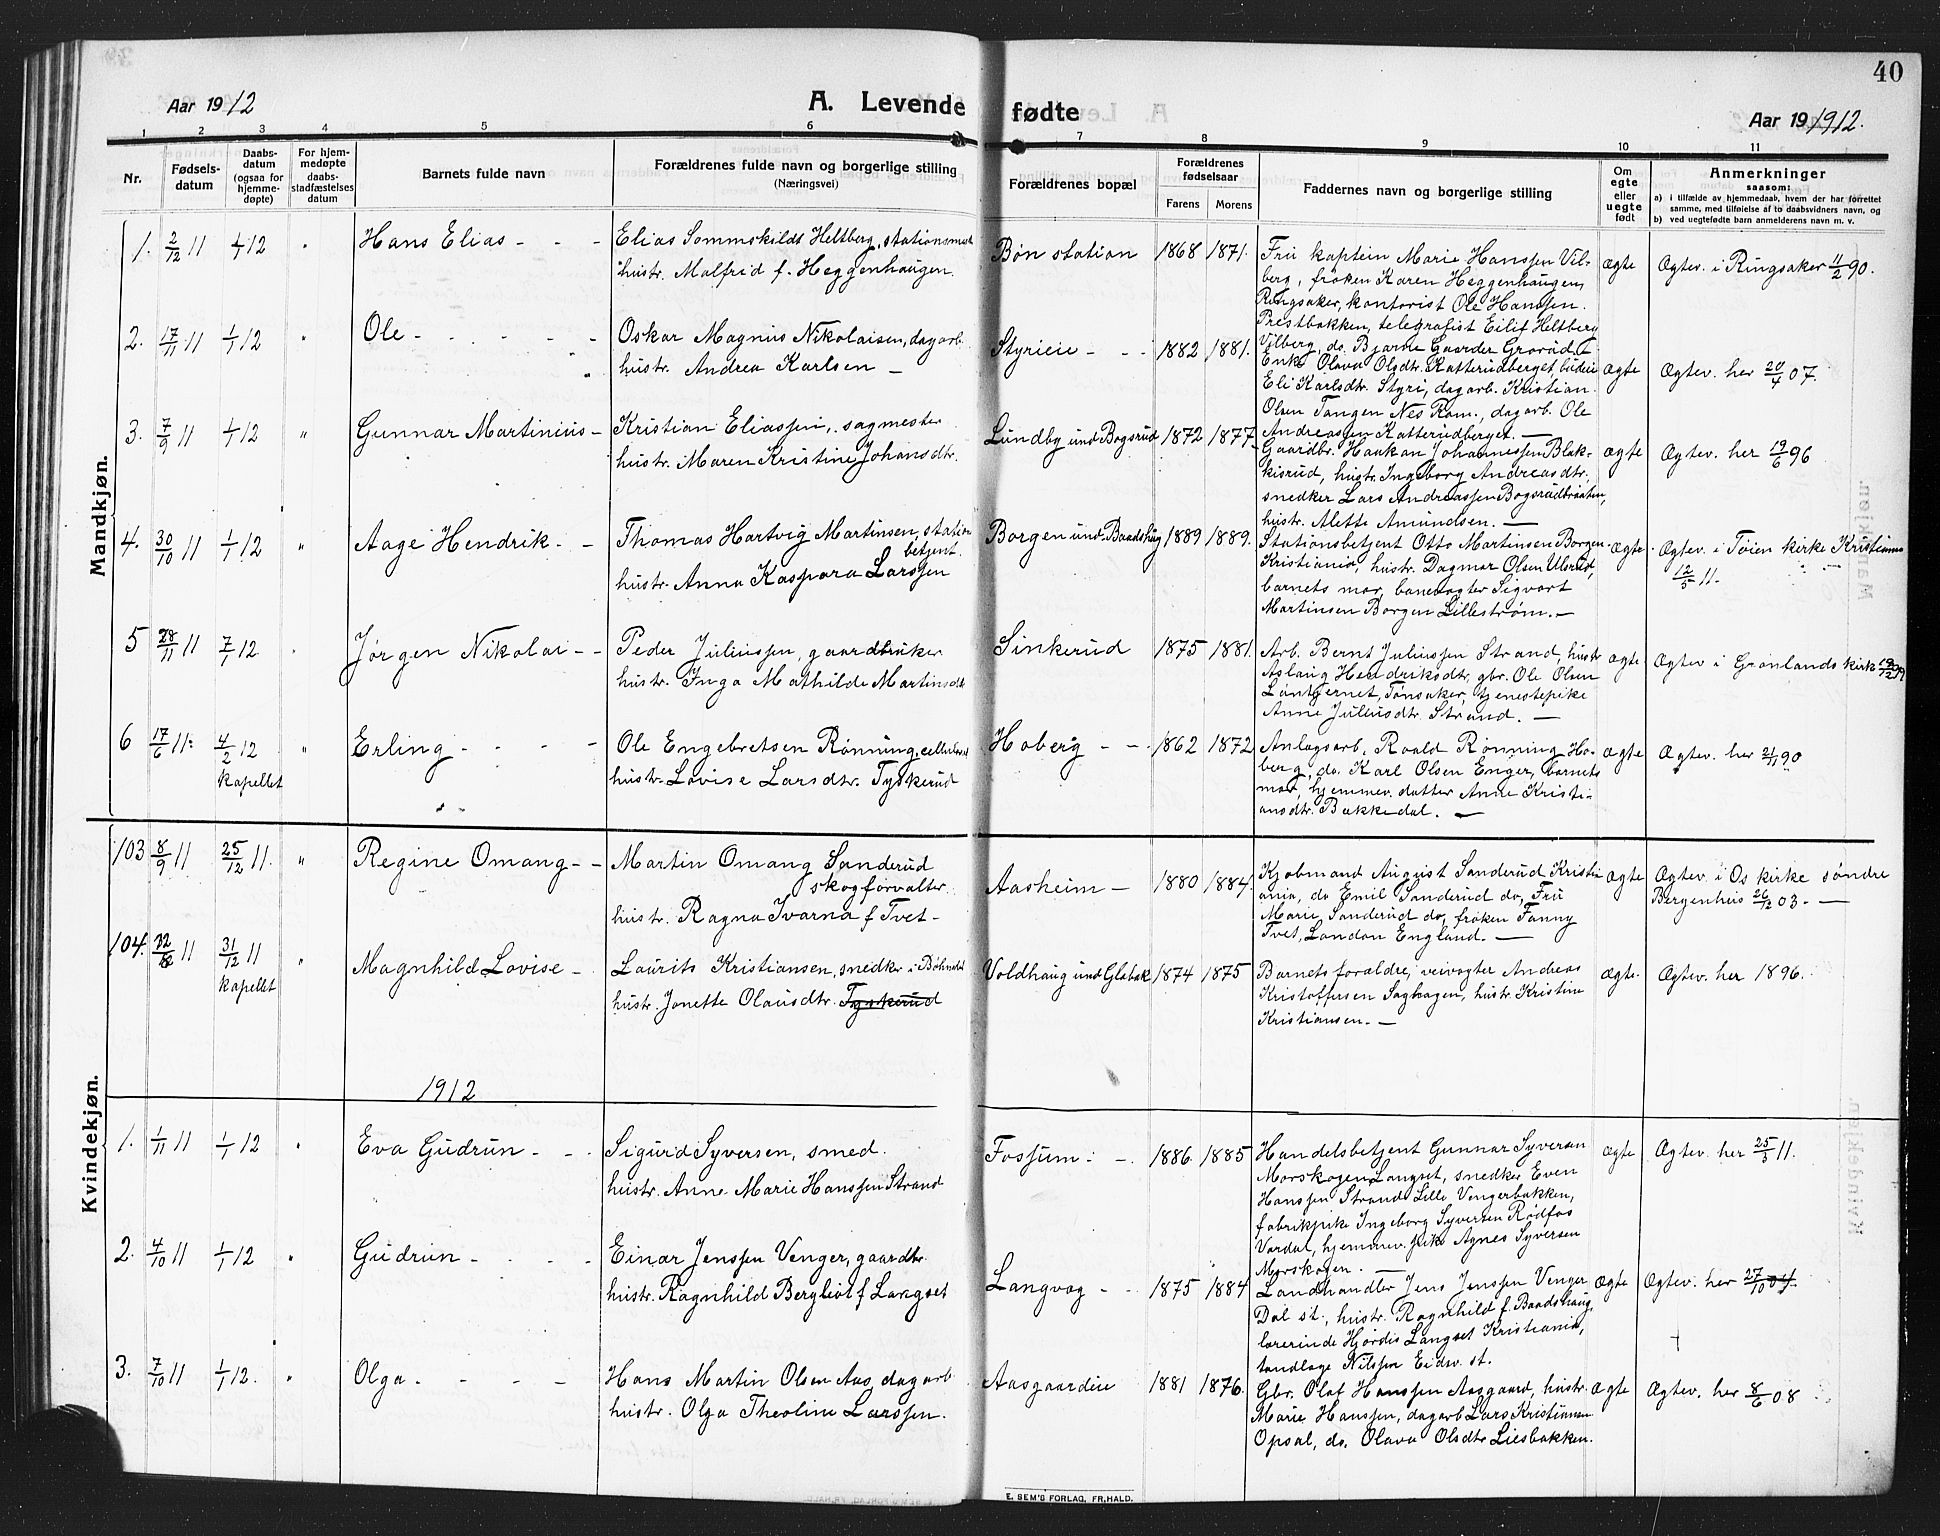 40
Aar 1912
A. Levende fødte
Aar 19 1912.
1 2 3 4 5 6 7 8 9 10 11
Nr.
Fødsels-
datum
Daabs-
datum
(ogsaa for
hjemme-
døpte)
For hjem-
medøpte
daabs-
stadfæstelses
datum
Barnets fulde navn
Forældrenes fulde navn og borgerlige stilling
(Næringsvei)
Forældrenes bopæl
Forældrenes
fødselsaar
Farens Morens
Faddernes navn og borgerlige stilling
Om
egte
eller
uegte
født
Anmerkninger
saasom:
a) i tilfælde av hjemmedaab, hvem der har forrettet
samme, med tilføielse af to daabsvidners navn, og
b) ved uegtefødte barn anmelderens navn m. v.
Mandkjøn.
1. 2/12 11 1/1 12 " Hans Elias - - -
Elias Sommskildt Heltberg, stationsmest
hustr. Malfrid f. Heggenhaugen.
Bøn station 1868 1871.
Fru kaptein Marie Hanssen Vil-
berg, frøken Karen Heggenhaugen,
Ringsaker, kontorist Ole Hanssen
Prestbakken, telegrafist Eilif Heltberg
Vilberg, do. Bjarne Gaarder Grorud.
ægte Ægtev. i Ringsaker 11/2 90.
2. 17/11 11 1/1 12 " Ole - - - -
Oskar Magnus Nikolaisen, dagarb.
hustr. Andrea Karlsen -
Styrieie - - 1882 1881.
Enke Olava Olsdtr. Katterudberget, budeie
Eli Karlsdtr. Styri, dagarb. Kristian
Olsen Tangen Nes Rom., dagarb. Ole
Andreassen Katterudberget. -
ægte Ægtev. her 20/4 07.
3. 7/9 11 1/1 12 " Gunnar Martinius -
Kristian Eliassen, sagmester
hustr. Maren Kristine Johansdtr.
Lundby und. Bogsrud 1872 1877.
Gaardbr. Haakan Johannessen Blak-
kisrud, hustr. Ingeborg Andreasdtr.
snedker Lars Andreassen Bogsrudbraaten,
hustr. Alette Amundsen. -
ægte Ægtev. her 19/6 96
4. 30/10 11 1/1 12 " Aage Hendrik - -
Thomas Hartvig Martinsen, station
betjent
hustr. Anna Kaspara Larssen
Borgen und. Baadshaug 1889 1889.
Stationsbetjent Otto Martinsen Borgen
Kristiania, hustr. Dagmar Olsen Ulsrud,
barnets mor, banevogter Sigvart
Martinsen Borgen Lillestrøm. -
ægte. Ægtev. i Tøien kirke Kristiania
12/5 11.
5 28/11 11 7/1 12 Jørgen Nikolai - -
Peder Juliussen, gaardbruker
hustr. Inga Mathilde Martinsdtr
Sinkerud 1875 1881.
Arb. Bernt Juliussen Strand, hustr
Aslaug Hendriksdtr, gbr. Ole Olsen
Løntjernet, Tønsaker, tjenestepike
Anne Juliusdtr. Strand. -
ægte. Ægtev i Grønlands kirk
6 17/6 11 4/2 12 " Erling - - - -
kapellet
Ole Engebretsen Rønning, cellulosearb
hustr. Lovise Larsdtr. Tyskerud
Hoberg - - 1862 1872
Anlægsarb. Roald Rønning Ho-
berg, do. Karl Olsen Enger, barnets
mor, hjemmev. datter Anne Kristi-
ansdtr. Bakkedal. -
ægte Ægtev. her 21/11 90
Kvindekjøn.
103 8/9 11 25/12 11. " Regine Omang - -
Martin Omang Sanderud
skogforvalter
hustr. Ragna Ivarna f Tvet -
Aasheim - 1880 1884.
Kjøbmand August Sanderud Kristi
ania, do Emil Sanderud do, Fru
Marie Sanderud do, frøken Fanny
Tvet, London England. -
ægte Ægtev. i Os kirke søndre
Bergenhus 26/12 03. -
104. 11 31/12 11 " Magnhild Lovise -
kapellet
Laurits Kristiansen, snedker i Bøhnsdal
hustr. Jonette Olausdtr. Tyskerud
Voldhaug und Glabak 1874 1875
Barnets forældre, veivogter Andreas
Kristoffersen Saghagen, hustr. Kristine
Kristiansen. -
ægte. Ægtev. her 1896.
1912
1. 1/11 11 1/1 12 " Eva Gudrun - -
Sigurd Syversen, smed.
hustr. Anne Marie Hanssen Strand
Fossum - - 1886 1885
Handelsbetjent Gunnar Syversen
Morskogen Langset, snedker Even
Hanssen Strand Lille Vengerbakken,
fabrikpike Ingeborg Syversen Rødfos
Vardal, hjemmev. pike Agnes Syversen
Morskogen. -
ægte Ægtev. her 25/3 11.
2. 4/10 11 1/1 12 " Gudrun - - - -
Einar Jenssen Venger, gaardbr.
hustr. Ragnhild Bergliot f Langset
Langvag - - 1875 1884
Landhandler Jens Jenssen Venger
Dal st., hustr. Ragnhild f. Baadshaug,
lærerinde Hjørdis Langset Kristiania,
tandlæge Nilssen Eidsv. st.
ægte Ægtev. her 27/10 04.
3. 7/10 11 1/1 12. " Olga - - - -
Hans Martin Olsen Aas, dagarb
hustr. Olga Theoline Larssen.
Aasgaardeie 1881 1876.
Gbr. Olaf Hanssen Aasgaard, hustr.
Marie Hanssen, dagarb Lars Kristiansen
Opsal, do. Olava Olsdtr Liesbakken.
ægte Ægtev. her 8/6 08
E. SEM'S FORLAG, FR.HALD.